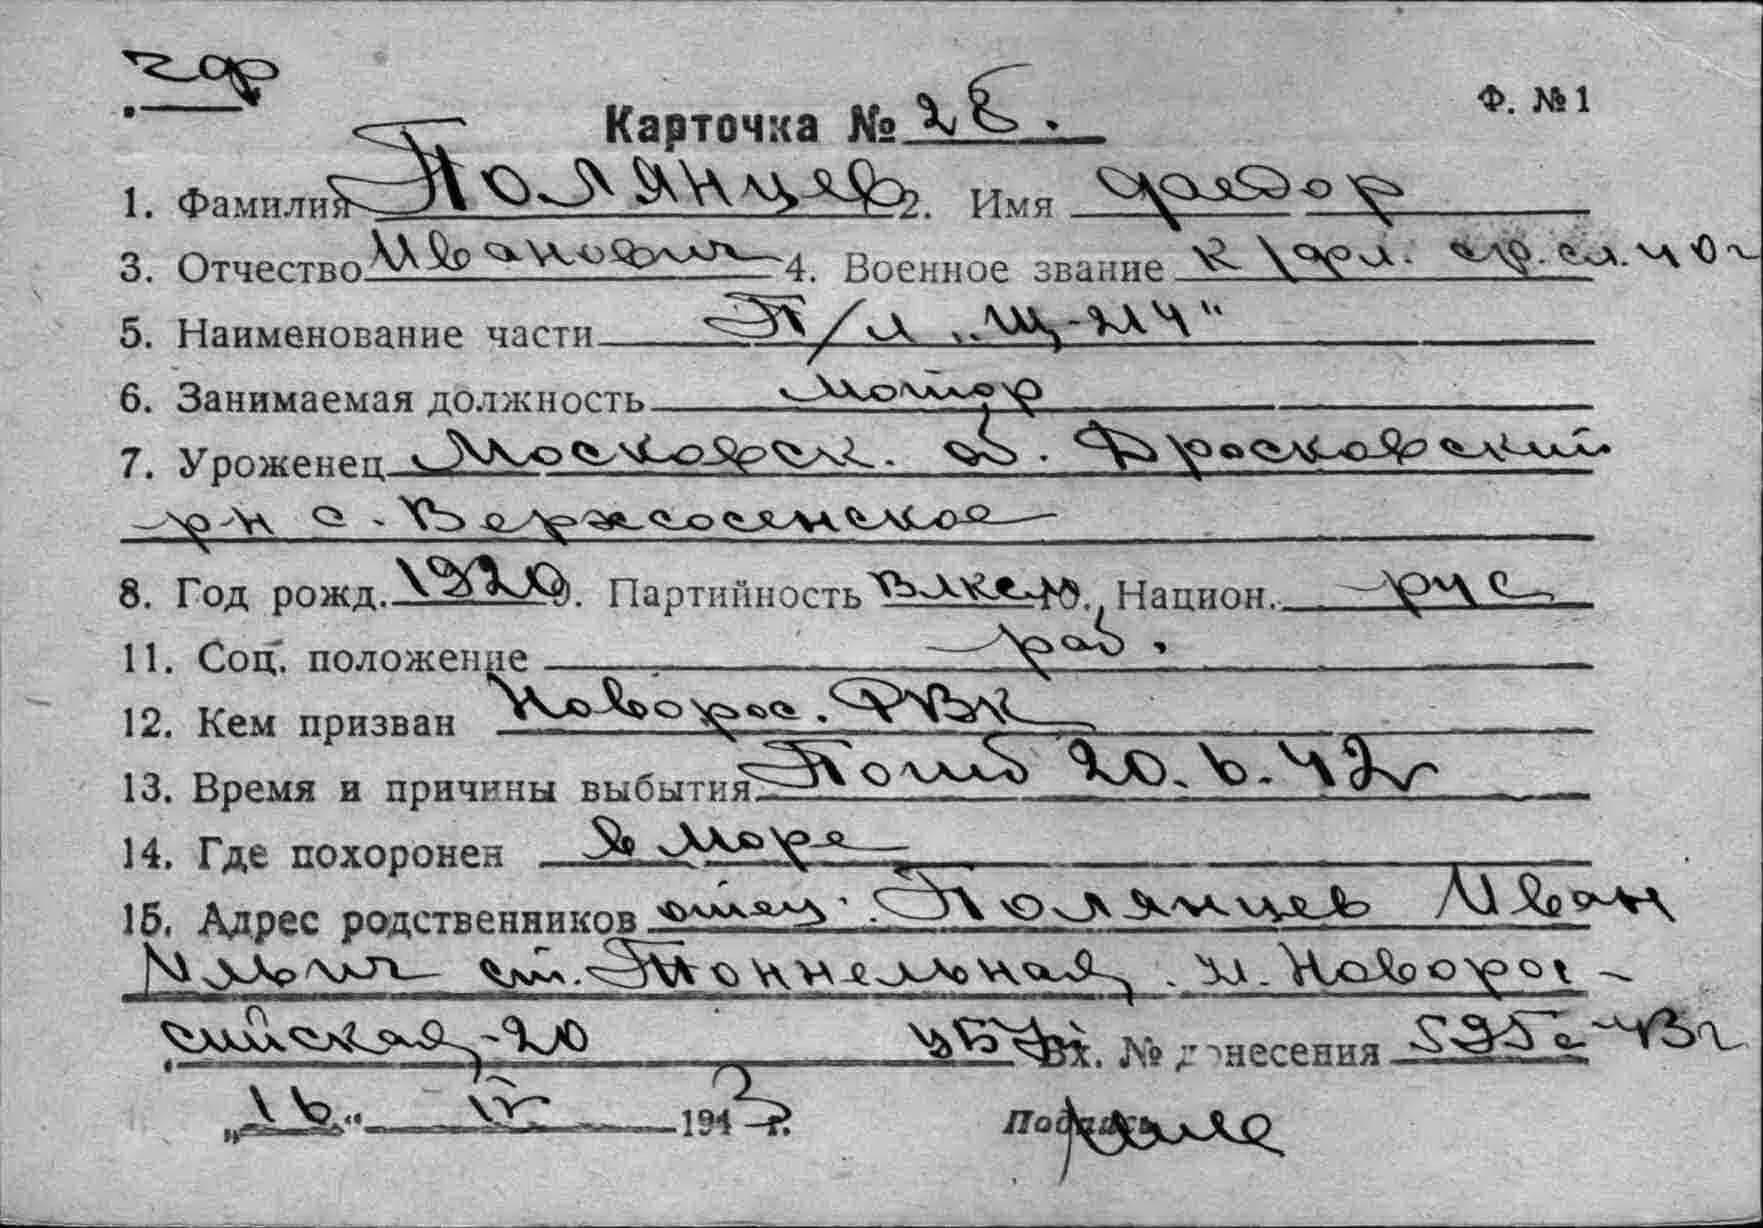 чф
Карточка № 28. Ф. № 1
1. Фамилия Полянцев 2. Имя Федор
3. Отчество Иванович 4. Военное звание к/фл. ср. сл. 40 г
5. Наименование части П/л „Щ-214"
6. Занимаемая должность мотор
7. Уроженец Московск. об. Дросковский
р-н с. Верхсосенское
8. Год рожд. 1920 9. Партийность ВЛКСМ 10. Национ. рус
11. Соц. положение раб.
12. Кем призван Новорос. РВК
13. Время и причины выбытия Погиб 20.6.42 г
14. Где похоронен в море
15. Адрес родственников отец: Полянцев Иван
Ильич ст. Тоннельная. ул. Новорос-
сийская-20 Вх. № донесения 595с-43 г
„16" IV 1943 г. Подпись